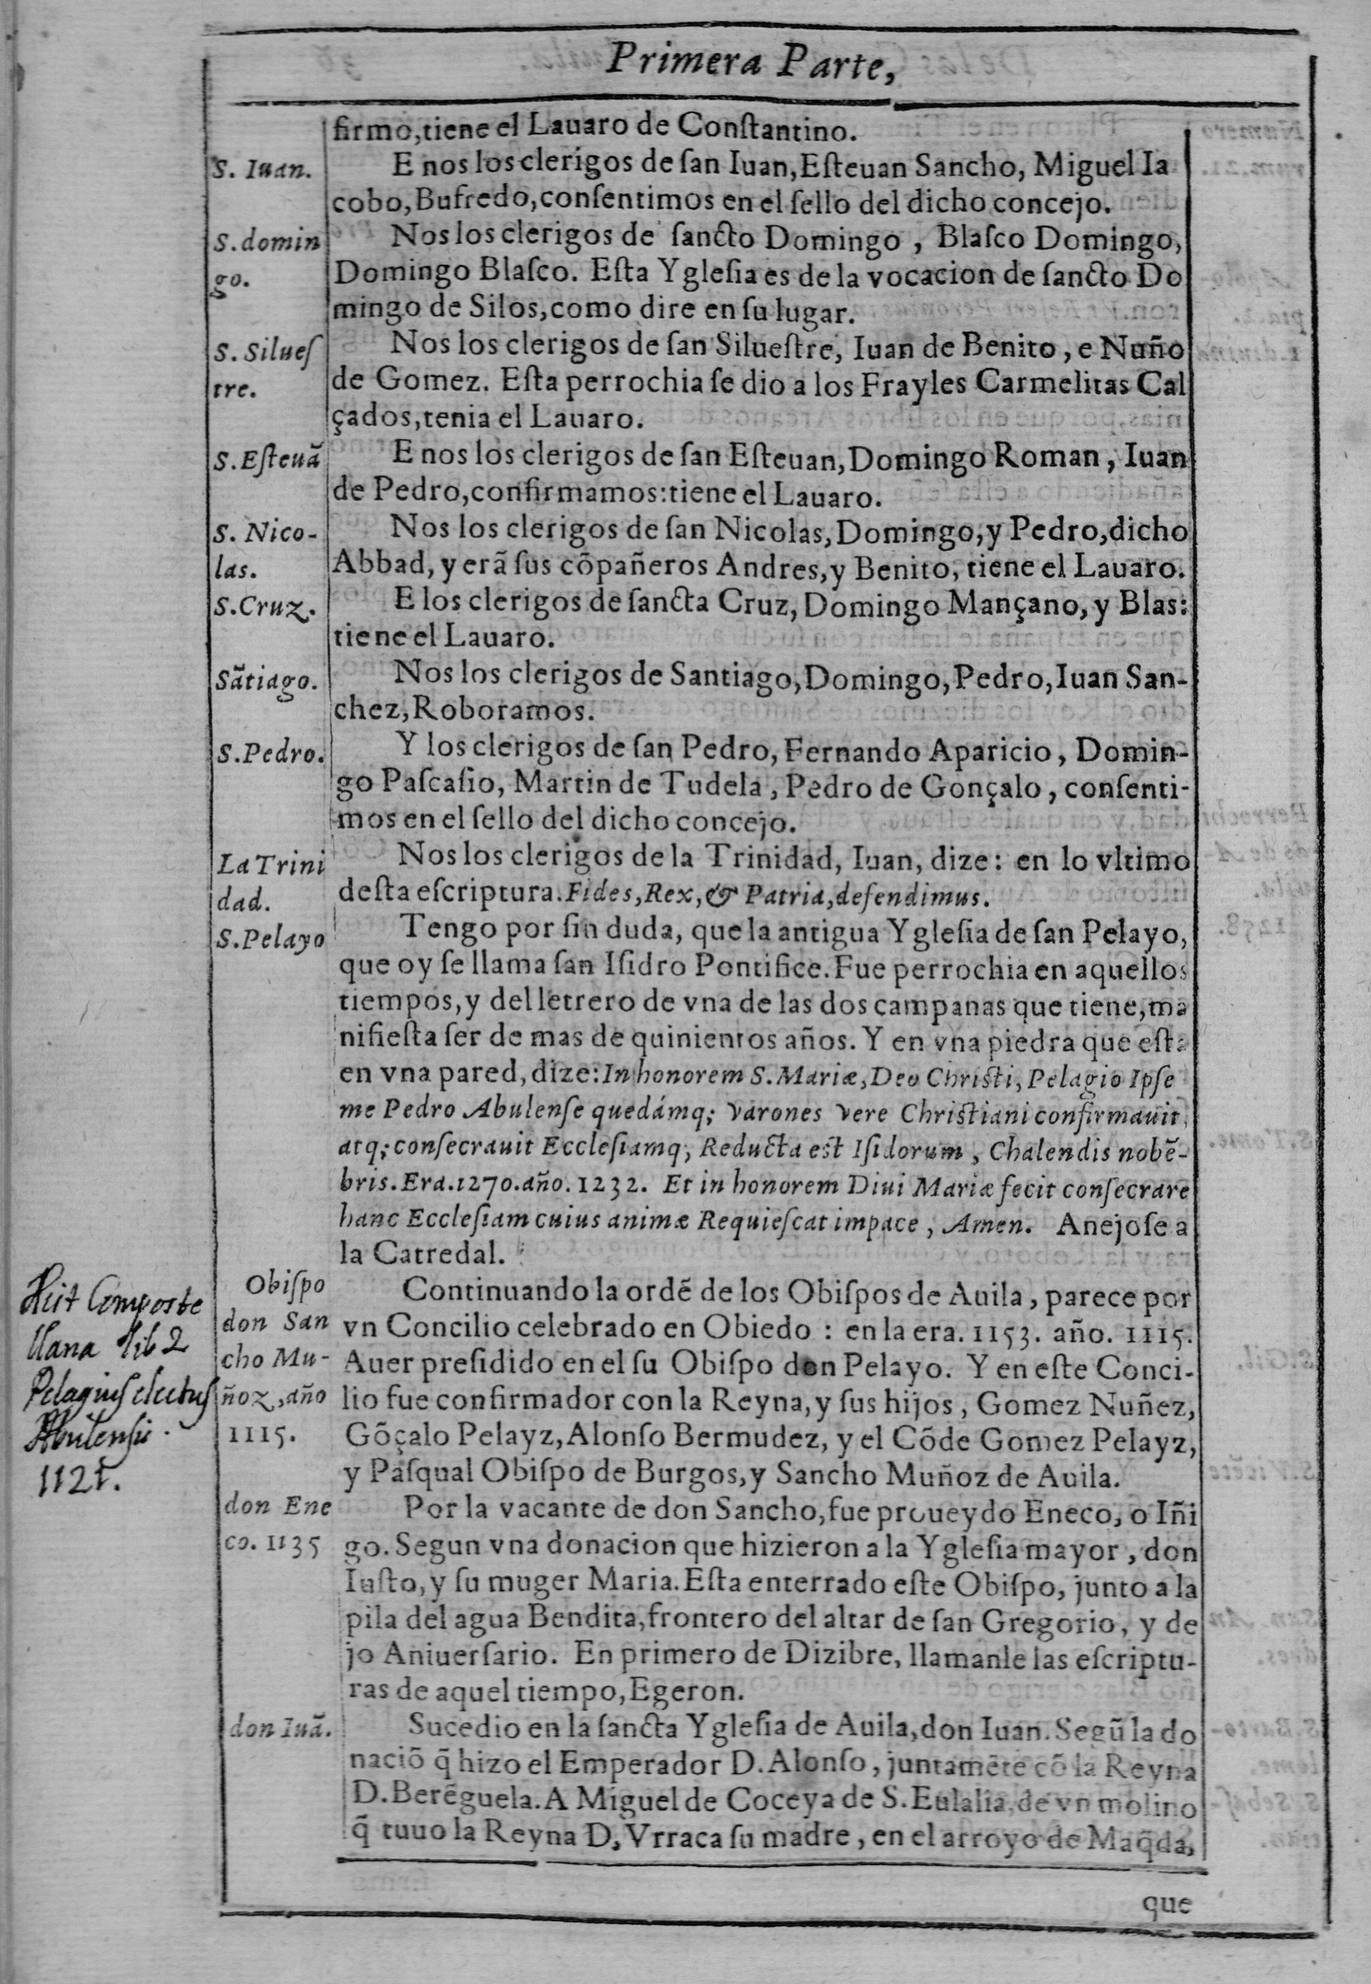 Primera Parte,
firmo,tiene el Lauaro de Conſtantino.
S. Iuan.
E nos los clerigos de ſan Iuan,Eſteuan Sancho, Miguel Ia
cobo,Bufredo,conſentimos en el ſello del dicho concejo.
S.domin
go.
Nos los clerigos de ſancto Domingo , Blaſco Domingo,
Domingo Blaſco. Eſta Ygleſia es de la vocacion de ſancto Do
mingo de Silos,como dire en ſu lugar.
S. Silueſ
tre.
Nos los clerigos de ſan Silueſtre, Iuan de Benito , e Nuño
de Gomez. Eſta perrochia ſe dio a los Frayles Carmelitas Cal
çados,tenia el Lauaro.
S.Eſteuã
E nos los clerigos de ſan Eſteuan,Domingo Roman , Iuan
de Pedro,confirmamos:tiene el Lauaro.
S. Nico-
las.
Nos los clerigos de ſan Nicolas,Domingo,y Pedro,dicho
Abbad, y erã ſus cõpañeros Andres,y Benito, tiene el Lauaro.
S.Cruz.
E los clerigos de ſancta Cruz, Domingo Mançano, y Blas:
tiene el Lauaro.
Sãtiago.
Nos los clerigos de Santiago,Domingo,Pedro,Iuan San-
chez,Roboramos.
S.Pedro.
Y los clerigos de ſan Pedro, Fernando Aparicio , Domin-
go Paſcaſio, Martin de Tudela , Pedro de Gonçalo , conſenti-
mos en el ſello del dicho concejo.
La Trini
dad.
Nos los clerigos de la Trinidad, Iuan, dize: en lo vltimo
deſta eſcriptura.Fides,Rex,& Patria,defendimus.
S.Pelayo
Tengo por ſin duda, que la antigua Ygleſia de ſan Pelayo,
que oy ſe llama ſan Iſidro Pontifice. Fue perrochia en aquellos
tiempos,y del letrero de vna de las dos campanas que tiene,ma
nifieſta ſer de mas de quinientos años. Y en vna piedra que eſta
en vna pared, dize:In honorem S.Mariæ,Deo Chriſti, Pelagio Ipſe
me Pedro Abulenſe quedámq; varones vere Chriſtiani confirmauit,
atq; conſecrauit Eccleſiamq; Reducta eſt Iſidorum , Chalendis nobẽ-
bris.Era.1270.año.1232. Et in honorem Diui Mariæ fecit conſecrare
hanc Eccleſiam cuius animæ Requieſcat impace , Amen. Anejoſe a
la Catredal.
Hist Composte
llana lib 2
Pelagius electus
Abulensis.
1121.
Obiſpo
don San
cho Mu-
ñoz,año
1115.
Continuando la ordẽ de los Obiſpos de Auila , parece por
vn Concilio celebrado en Obiedo : en la era. 1153. año. 1115.
Auer preſidido en el ſu Obiſpo don Pelayo. Y en eſte Conci-
lio fue confirmador con la Reyna, y ſus hijos , Gomez Nuñez,
Gõçalo Pelayz,Alonſo Bermudez, y el Cõde Gomez Pelayz,
y Paſqual Obiſpo de Burgos,y Sancho Muñoz de Auila.
don Ene
co. 1135
Por la vacante de don Sancho,fue proueydo Eneco, o Iñi
go. Segun vna donacion que hizieron a la Ygleſia mayor , don
Iuſto,y ſu muger Maria.Eſta enterrado eſte Obiſpo, junto a la
pila del agua Bendita,frontero del altar de ſan Gregorio, y de
jo Aniuerſario. En primero de Dizibre, llamanle las eſcriptu-
ras de aquel tiempo,Egeron.
don Iuã.
Sucedio en la ſancta Ygleſia de Auila,don Iuan.Segũ la do
naciõ q̃ hizo el Emperador D.Alonſo , juntamẽte cõ la Reyna
D.Berẽguela.A Miguel de Coceya de S.Eulalia,de vn molino
q̃ tuuo la Reyna D,Vrraca ſu madre , en el arroyo de Maq̃da,
que